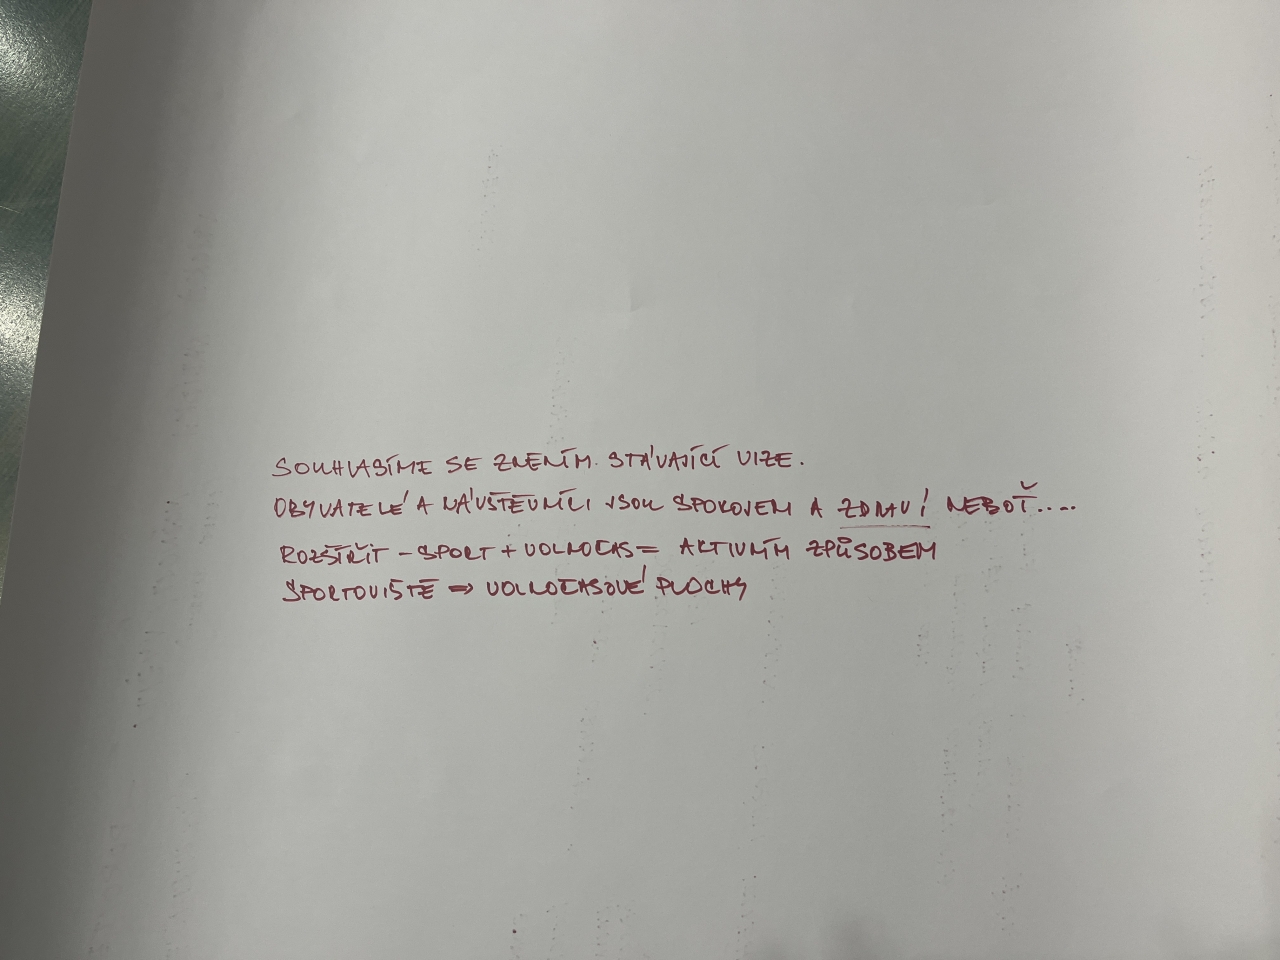 SOUHLASÍME SE ZNĚNÍM STÁVAJÍCÍ VIZE.
OBYVATELÉ A NÁVŠTĚVNÍCI JSOU SPOKOJENI A ZDRAVÍ NEBOŤ....
ROZŠÍŘIT - SPORT + VOLNOČAS = AKTIVNÍM ZPŮSOBEM
SPORTOVIŠTĚ ⇒ VOLNOČASOVÉ PLOCHY